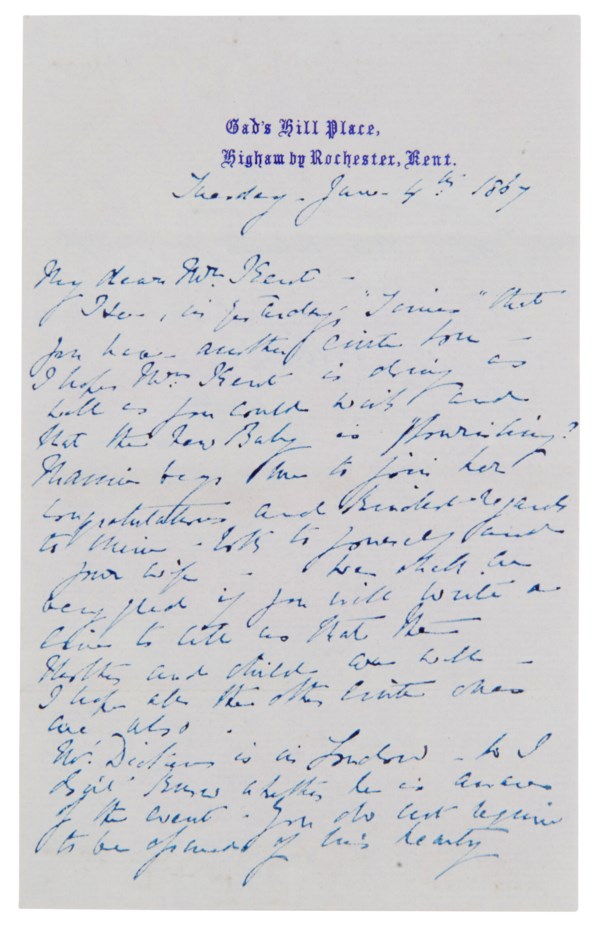 Gad's Hill Place,
Higham by Rochester, Kent.
Tuesday - June 4th 1867
My dear Mr. Kent -
I see, in yesterday's "Times" that
you have another little son -
I hope Mrs. Kent is doing as
well as you could wish and
that the new Baby is flourishing?
Mamie begs me to join her
congratulations and kindest regards
to mine - both to yourself and
your wife - We shall be
very glad if you will write a
line to tell us that the
Mother and child are well -
I hope all the other little ones
are also.
Mr. Dickens is in London - so I
don't know whether he is aware
of the event - You do not require
to be of his hearty